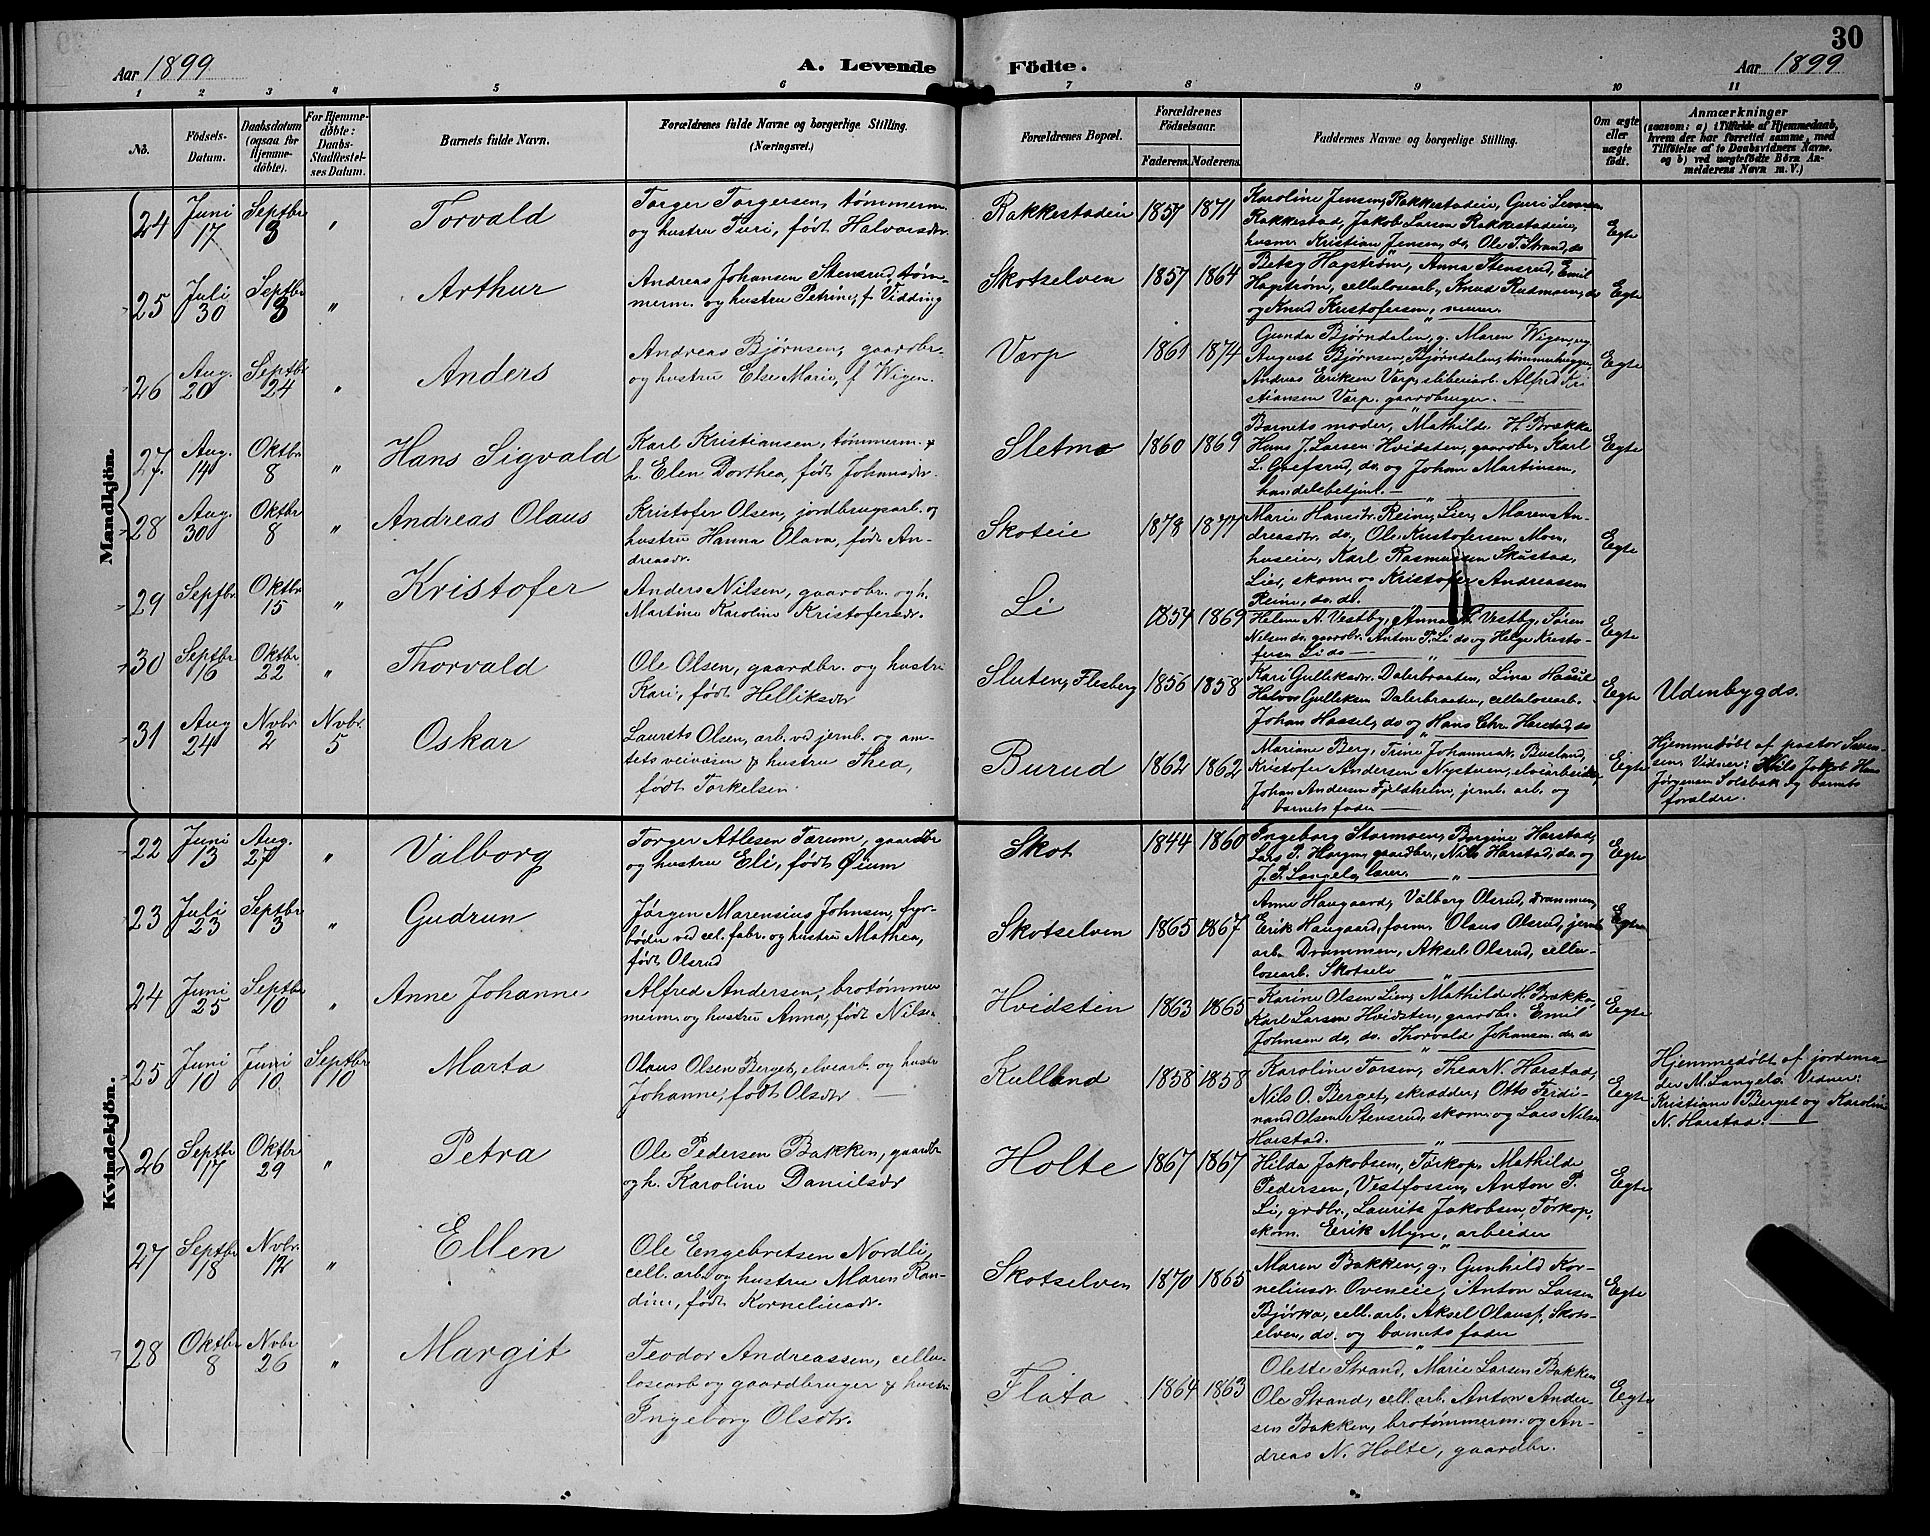 30
Aar 1899
A. Levende Födte.
Aar 1899
1 2 3 4 5 6 7 8 9 10 11
No.
Födsels-Datum.
Daabsdatum (ogsaa for Hjemme-döbte).
For Hjemme-döbte: Daabs-Stadfæstel-ses Datum.
Barnets fulde Navn.
Forældrenes fulde Navne og borgerlige Stilling.
(Næringsvei.)
Forældrenes Bopæl.
Forældrenes Födselsaar.
Faderens. Moderens.
Faddernes Navne og borgerlige Stilling.
Om ægte eller uægte födt.
Anmærkninger
(saasom: a) i Tilfælde af Hjemmedaab, hvem der har forrettet samme, med Tilföielse af to Daabsvidners Navne, og b) ved uægtefödte Börn Anmelderens Navn m. V.)
Mandkjön.
24 Juni 17 Septbr 3 " Torvald
Torger Torgersen, tømmerm.
og hustru Turi, født Halvorsdtr.
Rakkestadeie 1857 1871
Karoline Jensen, Rakkestadeie, Guri
Rakkestad, Jakob Larsen Rakkestadeie,
husm. Kristian Jensen, do, Ole T. Strand, do
Egte
25 Juli 30 Septbr 3 " Arthur
Andreas Johansen Stensrud, tøm-
merm. og hustru Petrine, f. Vidding
Skotselven 1857 1864
Betsy Hagstrøm, Anna Stensrud, Emil
Hagstrøm, cellulosearb., Knud Rudmoen, do
og Knud Kristofersen, murer.
Egte
26 Aug. 20 Septbr 24 " Anders
Andreas Bjørnsen, gaardbr.
og hustru Else Marie, f. Wigen.
Varp 1861 1874
Gunda Bjørndalen, g. Maren Wigen, og
August Bjørnsen, Bjørndalen, tømmerhugger,
Andreas Eriksen Varp, sliberiarb. Alfred Kri
stiansen Varp. gaardbruger.
Egte
27 Aug. 14 Oktbr 8 " Hans Sigvald
Karl Kristiansen, tømmerm. &
h. Elen Dorthea, født Johansdtr.
Sletmo 1860 1869
Barnets moder, Mathilde H. Brakke
Hans J. Larsen Hvidsten, gaardbr, Karl
L. Grefsrud, do. og Johan Martinsen,
handelsbetjent.
Egte
28 Aug. 30 Oktbr 8 " Andreas Olaus
Kristofer Olsen, jordbrugsarb. og
hustru Hanna Olava, født An-
dreasdtr.
Skoteie 1878 1877
Marie Hansdtr. Reine, Lier, Maren An-
dreasdtr. do, Ole Kristofersen Moen,
huseier, Karl Rasmussen Skustad,
Lier, skom. og Kristofer Andreassen
Reine, do. do.
Egte
29 Septbr 1 Oktbr 15 " Kristofer
Anders Nilsen, gaardbr. og h.
Martine Karoline Kristofersdtr.
Li 1854 1869
Helene A. Vestby, Anna A. Vestby, Søren
Nilsen do. gaardbr. Anton P. Li do og Helge Kristo-
fersen Li do
Egte
30 Septbr 16 Oktbr 22 " Thorvald
Ole Olsen, gaardbr. og hustru
Kari, født Helliksdtr
Sluten, Flesberg 1856 1858
Kari Gulleksdtr. Dalerbraaten, Lina Hassel
Halvor Gulleksen Dalerbraaten, cellulosearb.
Johan Hassel, do og Hans Chr. Harstad, do
Egte Udenbygds.
31 Aug 24 Nvbr 2 Nvbr. 5 Oskar
Laurits Olsen, arb. ved jernb. og am-
tets veivæsen & hustru Thea,
født Torkelsen
Burud 1862 1862
Mariane Berg, Trine Johannesdtr. Busland,
Kristofer Andersen Nysteuen, elvearbeider,
Johan Andersen Fjeldheim, jernb. arb. og
barnets fader
Egte
Hjemmedøbt af pastor Søren-
sen. Vidner: Nils Jakob Hans
Jørgensen Solsbak og barnets
forældre.
Kvindekjön.
22 Juni 13 Aug. 27 " Valborg
Torger Atlesen Tærum, gaardbr
og hustru Eli, født Øium
Skot 1844 1860
Ingeborg Stormoen, Borgine Harstad,
Lars P. Horgen, gaardbr., Nils Harstad, do. og
J. P. Langelg, lærer.
Egte
23 Juli 23 Septbr 3 " Gudrun
Jørgen Marensius Johnsen, fyr-
bøder ved cel. fabr. og hustru Mathea,
født Olsrud
Skotselven 1865 1867
Anne Haugaard, Valborg Olsrud, Drammen,
Erik Haugaard, form. Olaus Olsrud, jernb.
arb. Drammen, Aksel Olsrud, cellu-
losearb. Skotselv
Egte
24 Juni 25 Septbr 10 " Anne Johanne
Alfred Andersen, brotømmer
merm. og hustru Anna, født Nilsen
Hvidstin 1863 1865
Karine Olsen Lien, Mathilde H. Brakke,
Karl Larsen Hvidsten, gaardbr. Emil
Johnsen do, do. Thorvald Johansen do. do
Egte
25 Juni 10 Juni 10 Septbr 10 Marta
Olaus Olsen Berget, elvearb. og hustru
Johanne, født Olsdtr
Kulland 1858 1858
Karoline Torsen, Thea N. Harstad,
Nils O. Berget, skrædder, Otto Ferdi-
nand Olsen Stensrud, skom. og Lars Nilsen
Harstad.
Egte
Hjemmedøbt af jordemo-
der M. Langelg. Vidner:
Kristiane Berget og Karoline
N. Harstad.
26 Septbr 17 Oktbr 29 " Petra
Ole Pedersen Bakken, gaardbr
og h. Karoline Danielsdtr
Holte 1867 1867
Hilda Jakobsen, Torkop, Mathilde
Pedersen, Vestfossen, Anton P.
Li, grdbr., Laurits Jakobsen, Torkop,
skom. Erik Myre, arbeider
Egte
27 Septbr 18 Nvbr. 12 " Ellen
Ole Engebretsen Nordli,
cell. arb. og hustru Maren Ran-
dine, født Korneliusdtr.
Skotselven 1870 1865
Maren Bakken, g. Gunhild Kor-
neliusdtr Oveneie, Anton Larsen
Bjørka, cell. arb. Aksel Olausf. Skots-
elven, do. og barnets fader
Egte
28 Oktbr 8 Nvbr 26 " Margit
Teodor Andreassen, cellu-
losearb og gaardbruger & hustru
Ingeborg Olsdtr.
Flata 1864 1863
Olette Strand, Marie Larsen Bakken
Ole Strand, cell. arb. Anton Ander-
sen Bakken, brotømmerm. og An-
dreas N. Holte, gaardbr.
Egte